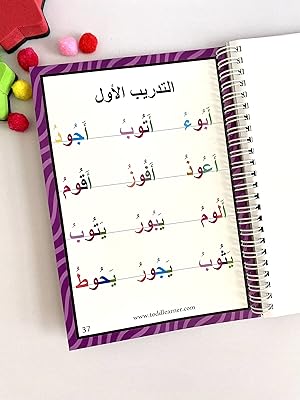 التدريب الأول
أَبُوءُ أَتُوبُ أَجُودُ
أَعُوذُ أَفُوزُ أَقُومُ
أَلُومُ يَبُورُ يَتُوبُ
يَثُوبُ يَجُورُ يَحُوطُ
www.toddlearner.com
37